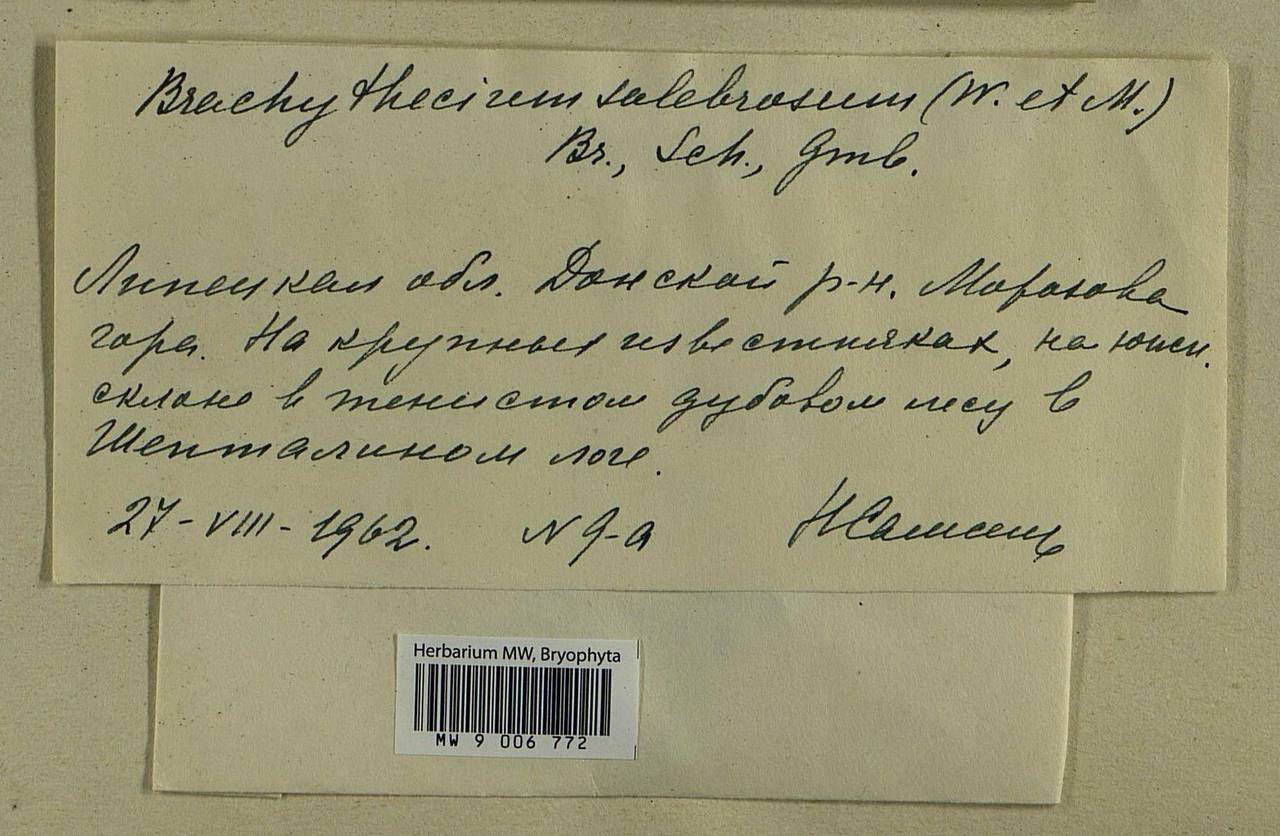 Brachythecium salebrosum (W. et M.)
Br., Sch., Gmb.
Липецкая обл. Донской р-н. Морозова
гора. На крупных известняках, на южн.
склоне в тенистом дубовом лесу в
Шепталином логе.
27-VIII-1962. N 9-а
Herbarium MW, Bryophyta
MW 9 006 772